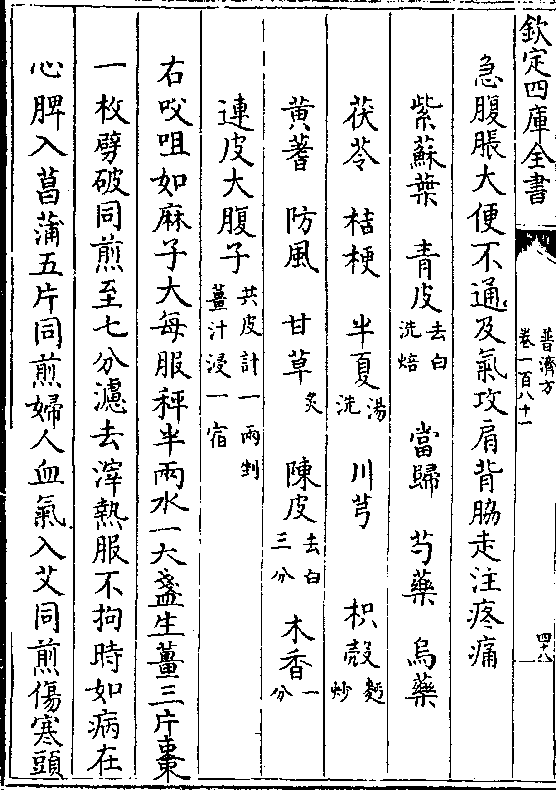 欽定四庫全書
普濟方
卷一百八十一
四十八
急腹脹大便不通及氣攻肩背脇走注疼痛
紫蘇葉 青皮去白洗焙 當歸 芍藥 烏藥
茯苓 桔梗 半夏湯洗 川芎 枳殼麪炒
黄蓍 防風 甘草炙 陳皮去白三分 木香一分
連皮大腹子共皮計一兩剉薑汁浸一宿
右㕮咀如麻子大每服秤半兩水一大盞生薑三片棗
一枚劈破同煎至七分濾去滓熱服不拘時如病在
心脾入菖蒲五片同煎婦人血氣入艾同煎傷寒頭